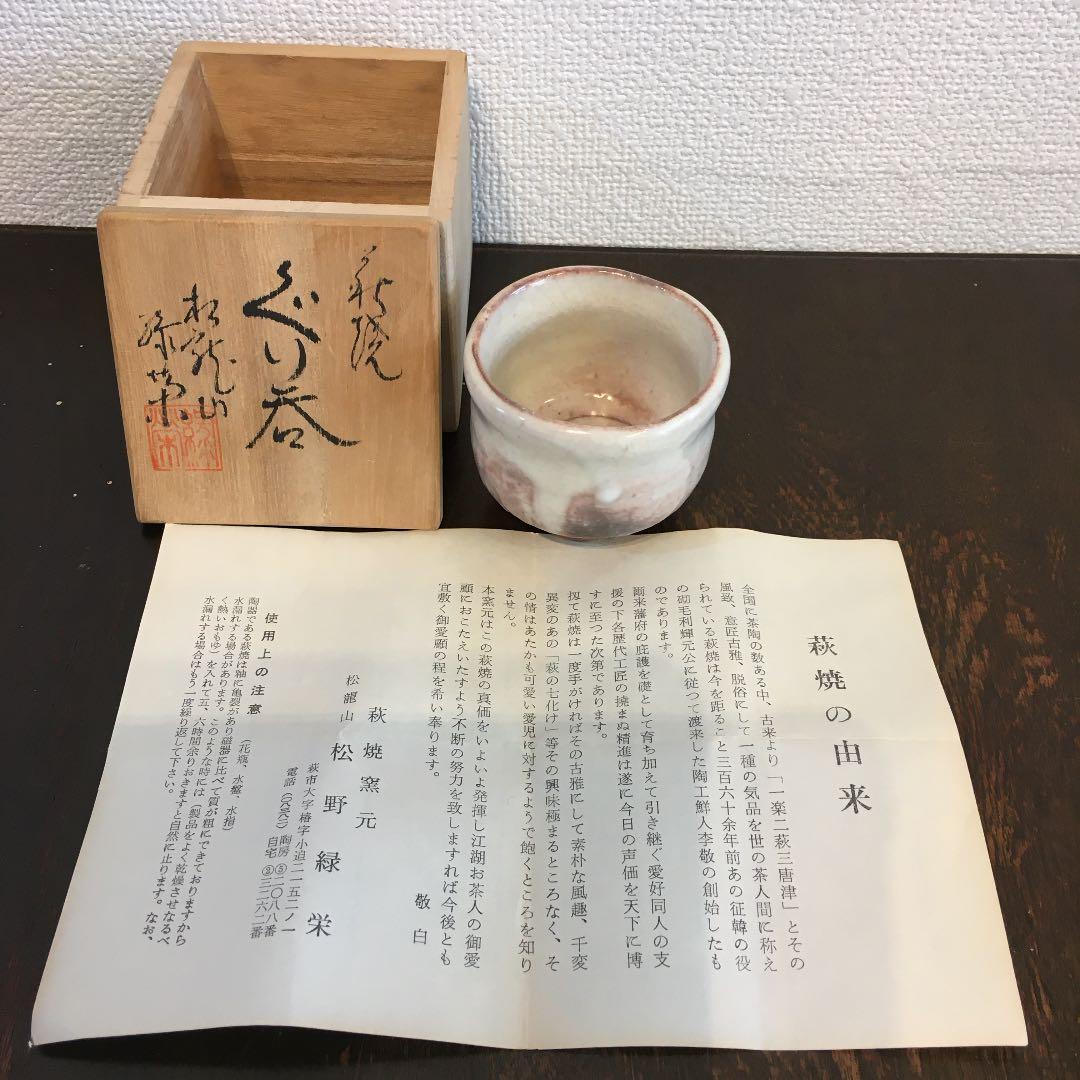 萩焼
ぐい呑
松龍山
緑栄
緑栄
萩焼の由来
全国に茶陶の数ある中、古来より「一楽二萩三唐津」とその
風致、意匠古雅、脱俗にして一種の気品を世の茶人間に称え
られている萩焼は今を距ること三百六十余年前あの征韓の役
の砌毛利輝元公に従つて渡来した陶工鮮人李敬の創始したも
のであります。
爾来藩府の庇護を礎として育ち加えて引き継ぐ愛好同人の支
援の下各歴代工匠の撓まぬ精進は遂に今日の声価を天下に博
すに至つた次第であります。
扨て萩焼は一度手がければその古雅にして素朴な風趣、千変
異変のあの「萩の七化け」等その興味極まるところなく、そ
の情はあたかも可愛い愛児に対するようで飽くところを知り
ません。
本窯元はこの萩焼の真価をいよいよ発揮し江湖お茶人の御愛
顧におこたえいたすよう不断の努力を致しますれば今後とも
宜敷く御愛顧の程を希い奉ります。
敬白
萩焼窯元
松龍山 松野緑栄
萩市大字椿字小迫二一五二ノ一
電話 陶房②二〇八八番
自宅②三三六二番
使用上の注意 (花瓶、水盤、水指)
陶器である萩焼は釉に亀裂があり磁器に比べて質が粗にできておりますから
水漏れする場合があります。このような時には(製品をよく乾燥させなるべ
く熱いおもゆ)を入れて五、六時間余りおきますと自然に止ります。なお、
水漏れする場合はもう一度繰り返して下さい。